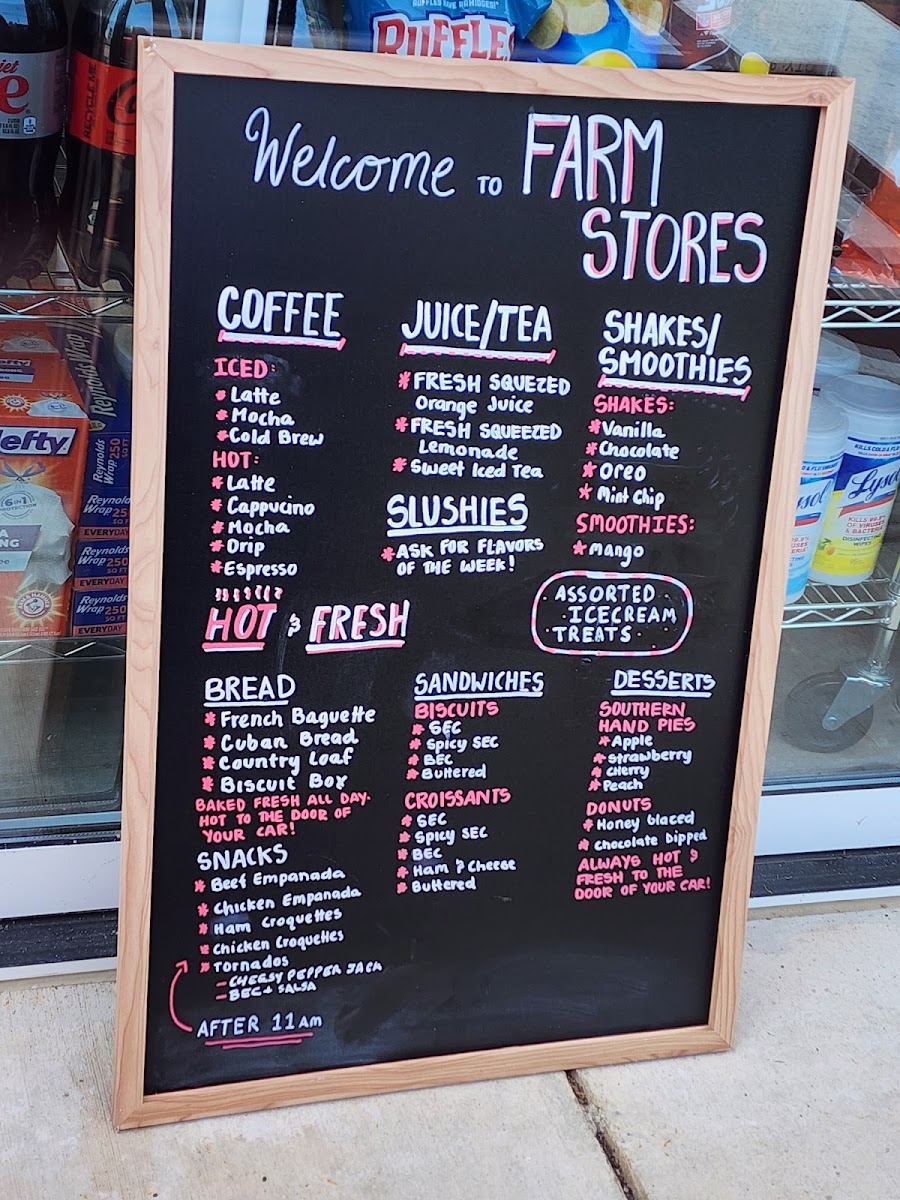 Welcome TO FARM
STORES
COFFEE
ICED:
* Latte
* Mocha
* Cold Brew
HOT:
* Latte
* Cappucino
* Mocha
* Drip
* Espresso
JUICE/TEA
* FRESH SQUEZED
Orange Juice
* FRESH SQUEEZED
Lemonade
* Sweet Iced Tea
SLUSHIES
* ASK FOR FLAVORS
OF THE WEEK!
SHAKES/
SMOOTHIES
SHAKES:
* Vanilla
* Chocolate
* Oreo
* Mint Chip
SMOOTHIES:
* Mango
ASSORTED
ICECREAM
TREATS
HOT & FRESH
BREAD
* French Baguette
* Cuban Bread
* Country Loaf
* Biscuit Box
BAKED FRESH ALL DAY.
HOT TO THE DOOR OF
YOUR CAR!
SNACKS
* Beef Empanada
* Chicken Empanada
* Ham Croquettes
* Chicken Croquettes
* Tornados
- CHEESY PEPPER JACK
- BEC + SALSA
AFTER 11AM
SANDWICHES
BISCUITS
* SEC
* Spicy SEC
* BEC
* Buttered
CROISSANTS
* SEC
* Spicy SEC
* BEC
* Ham & Cheese
* Buttered
DESSERTS
SOUTHERN
HAND PIES
* Apple
* Strawberry
* Cherry
* Peach
DONUTS
* Honey Glaced
* Chocolate Dipped
ALWAYS HOT &
FRESH TO THE
DOOR OF YOUR CAR!
RUFFLES
RECYCLE ME
efty
Reynolds
Wrap 250
Reynolds
Wrap 250
EVERYDAY
Reynolds
Wrap 250
EVERYDAY
Reynolds
Wrap 250
EVERYDAY
Lysol
KILLS 99.9%
OF VIRUSES
& BACTERIA
DISINFECTING
WIPES